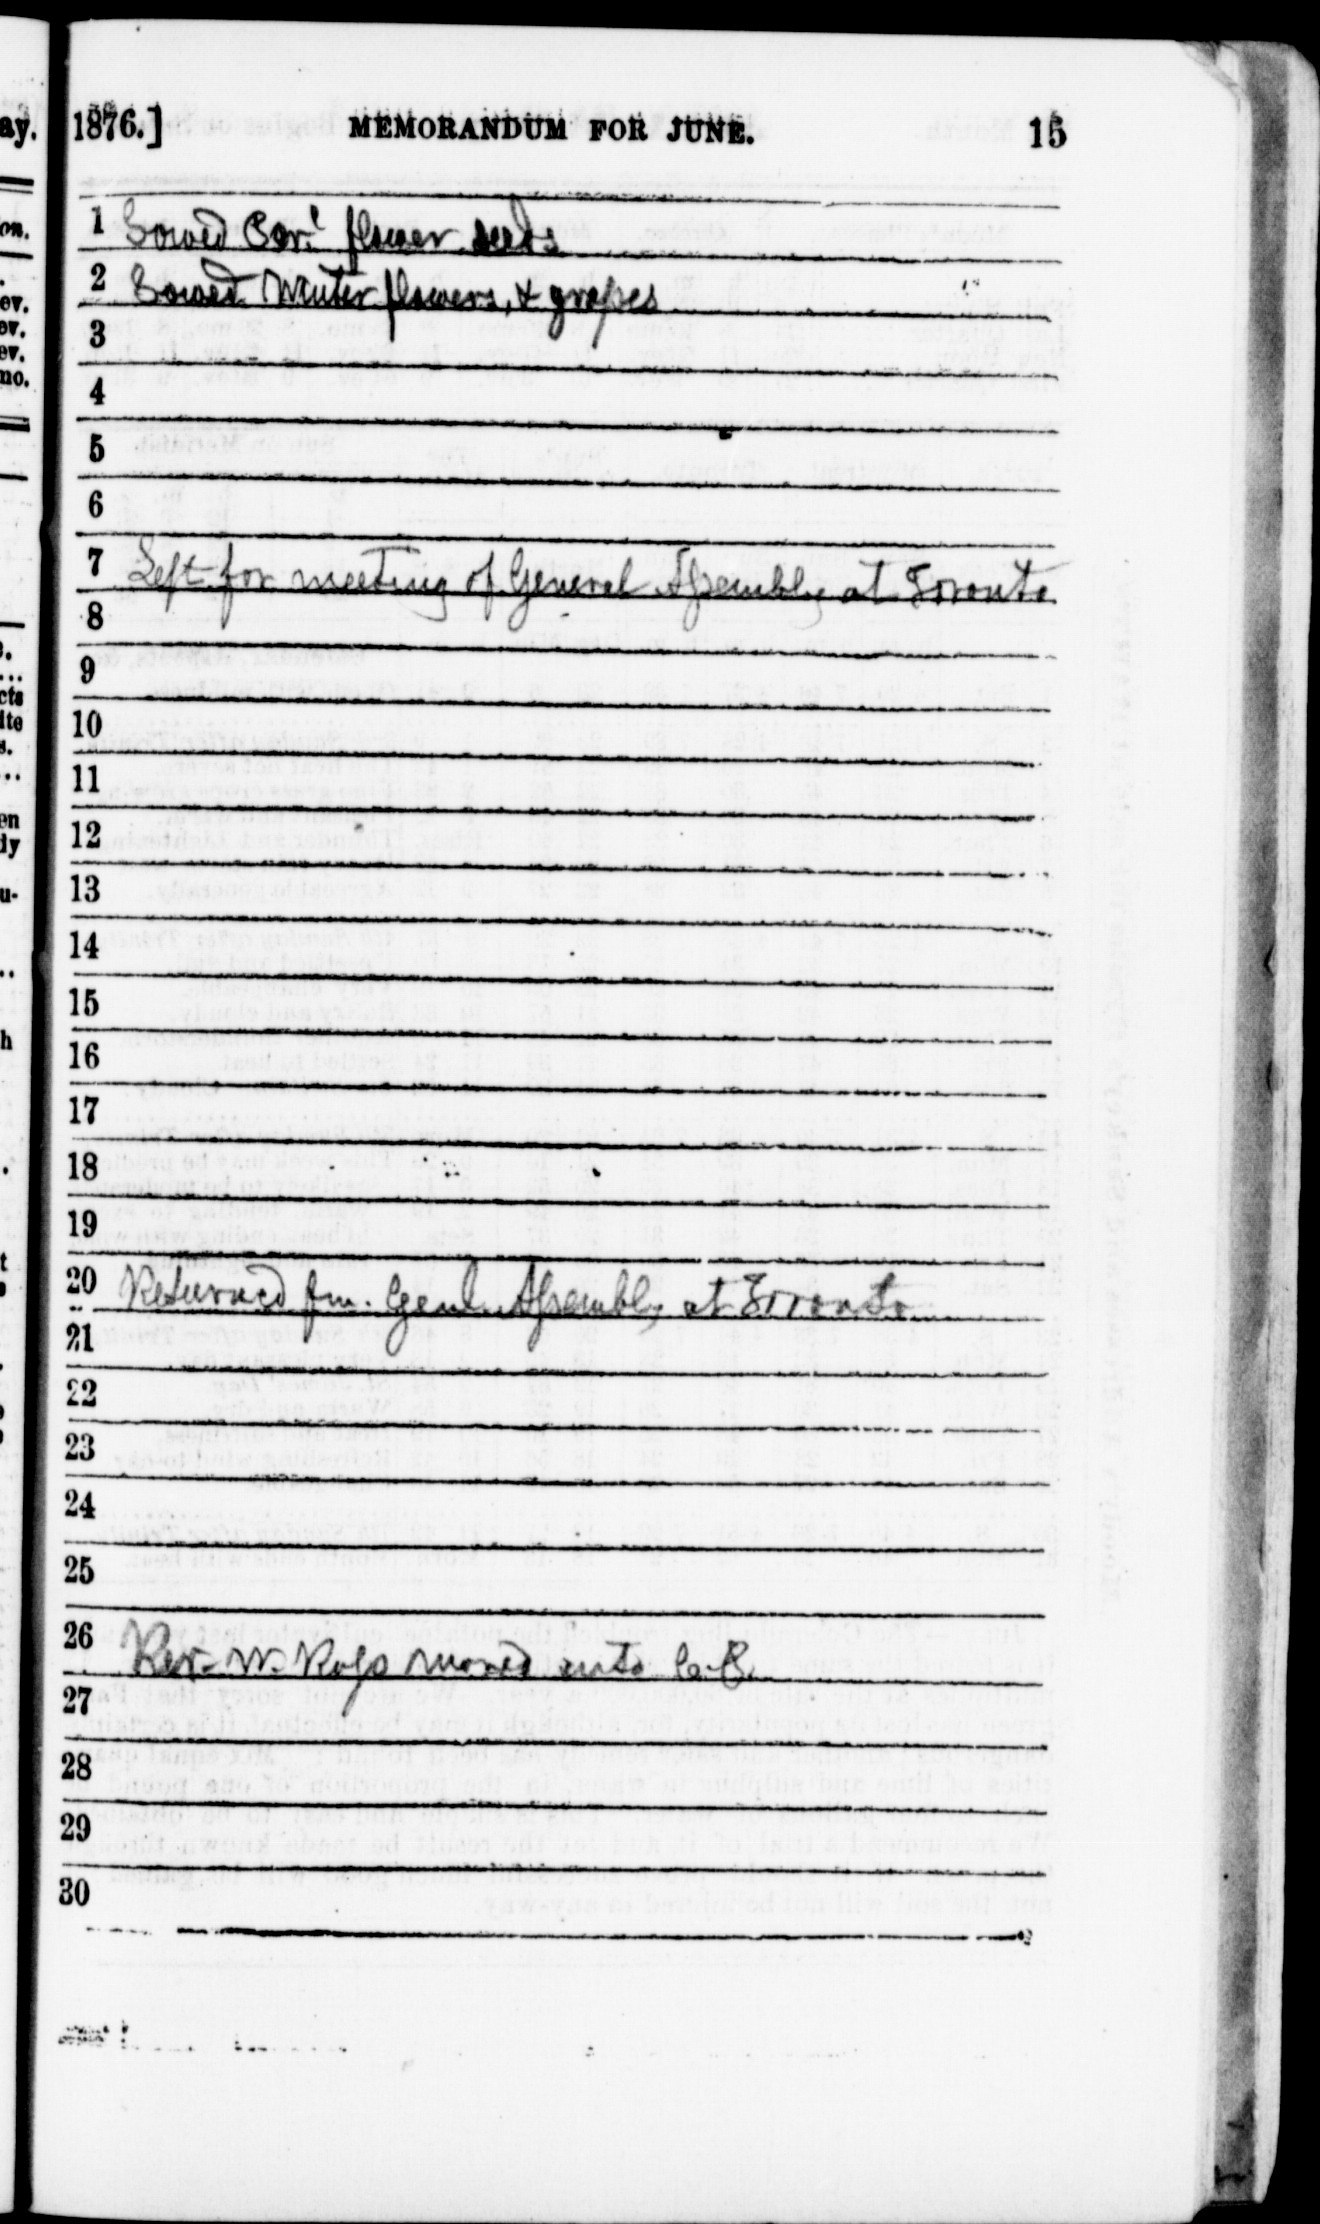 1876.] MEMORANDUM FOR JUNE. 15
1 Sowed flower seeds
2 Sowed Winter flowers, & grapes
3
4
5
6
7 Left for meeting of General Assembly at Toronto
8
9
10
11
12
13
14
15
16
17
18
19
20 Returned fm. Genl. Assembly at Toronto
21
22
23
24
25
26 Rev. W. Ross moved into C.B.
27
28
29
30